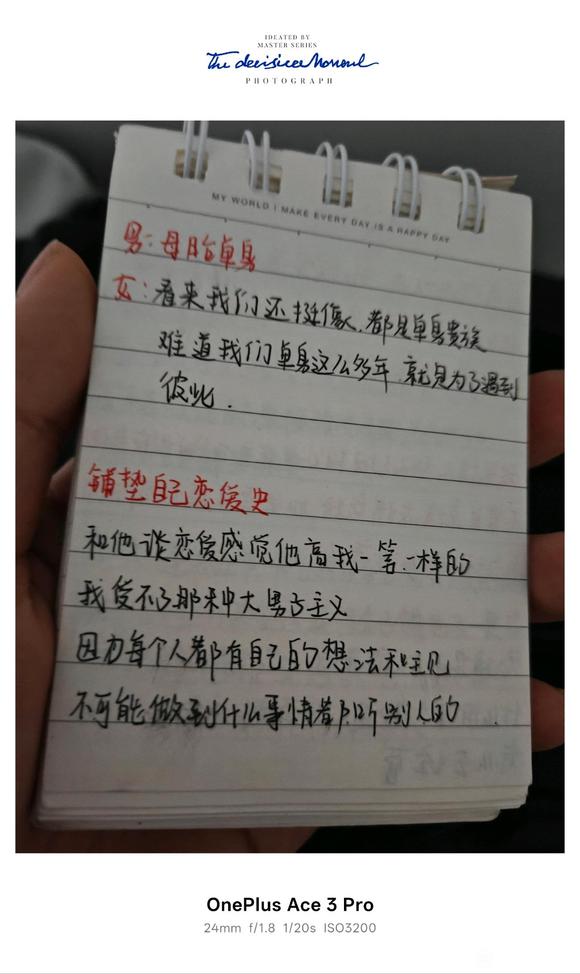 IDEATED BY
MASTER SERIES
The decisive Moment
PHOTOGRAPH
MY WORLD I MAKE EVERY DAY IS A HAPPY DAY
男:母胎单身
女:看来我们还挺像,都是单身贵族
难道我们单身这么多年 就是为了遇到
彼此.
铺垫自己恋爱史
和他谈恋爱感觉他高我一等一样的
我受不了那种大男子主义
因为每个人都有自己的想法和主见
不可能做到什么事情都听别人的
OnePlus Ace 3 Pro
24mm f/1.8 1/20s ISO3200